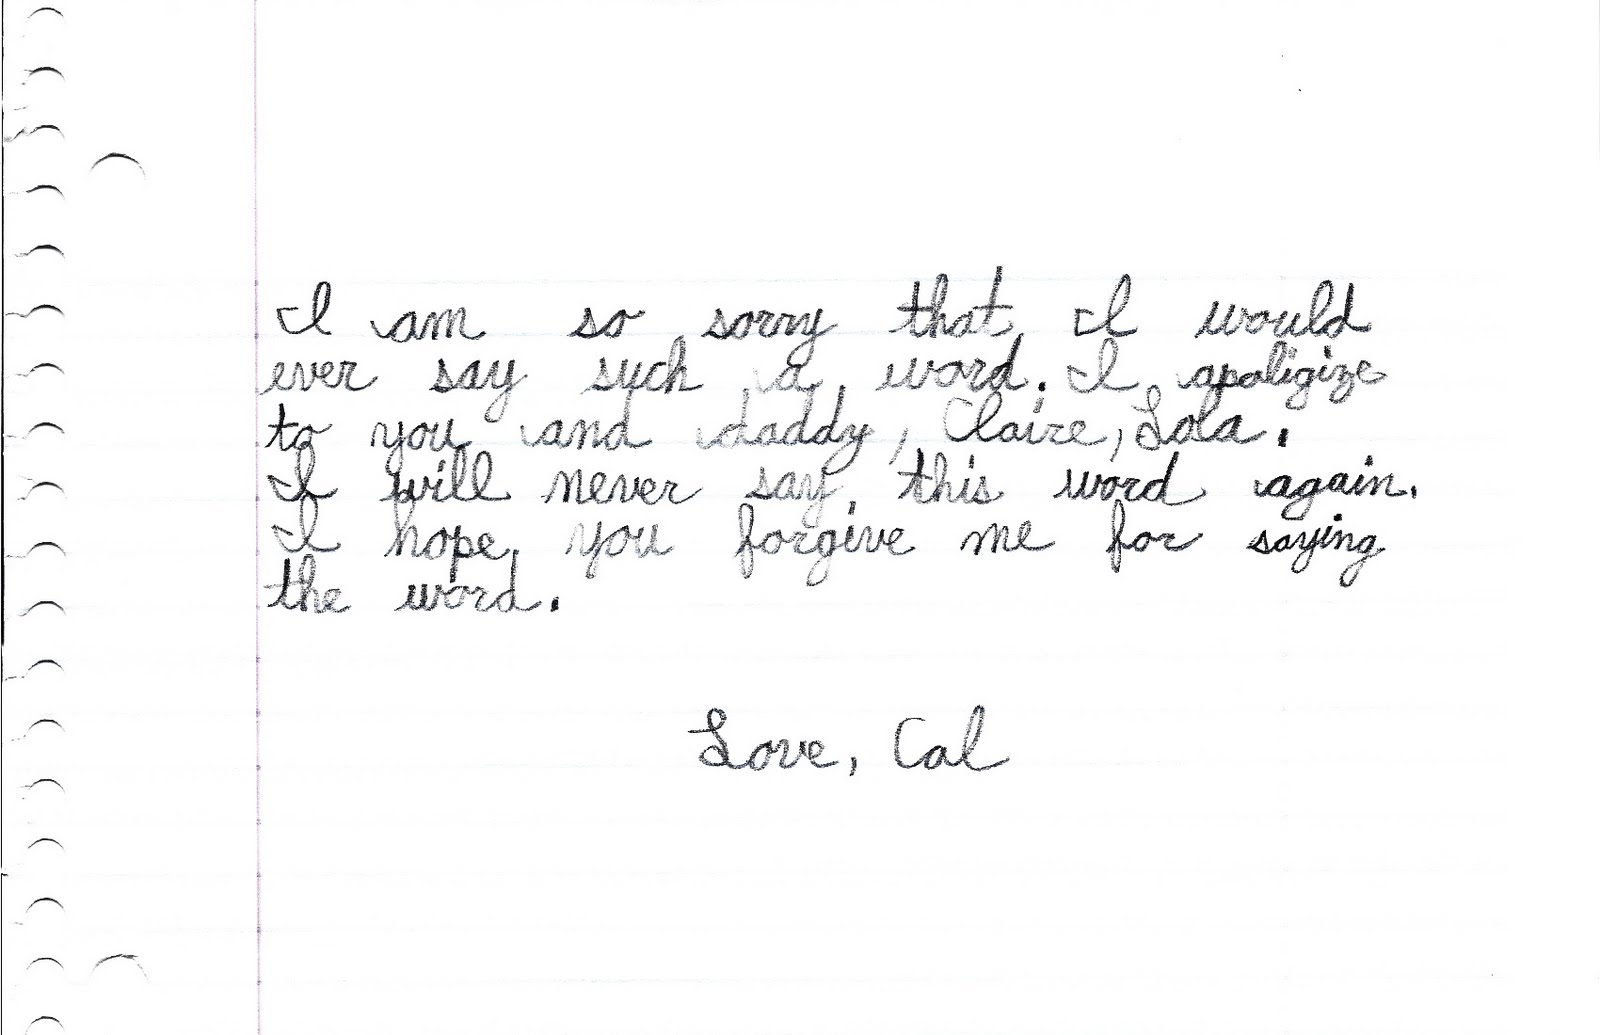 I am so sorry that I would
ever say such a word. I apoligize
to you and daddy, Claire, Lola.
I will never say this word again.
I hope you forgive me for saying
the word.
Love, Cal